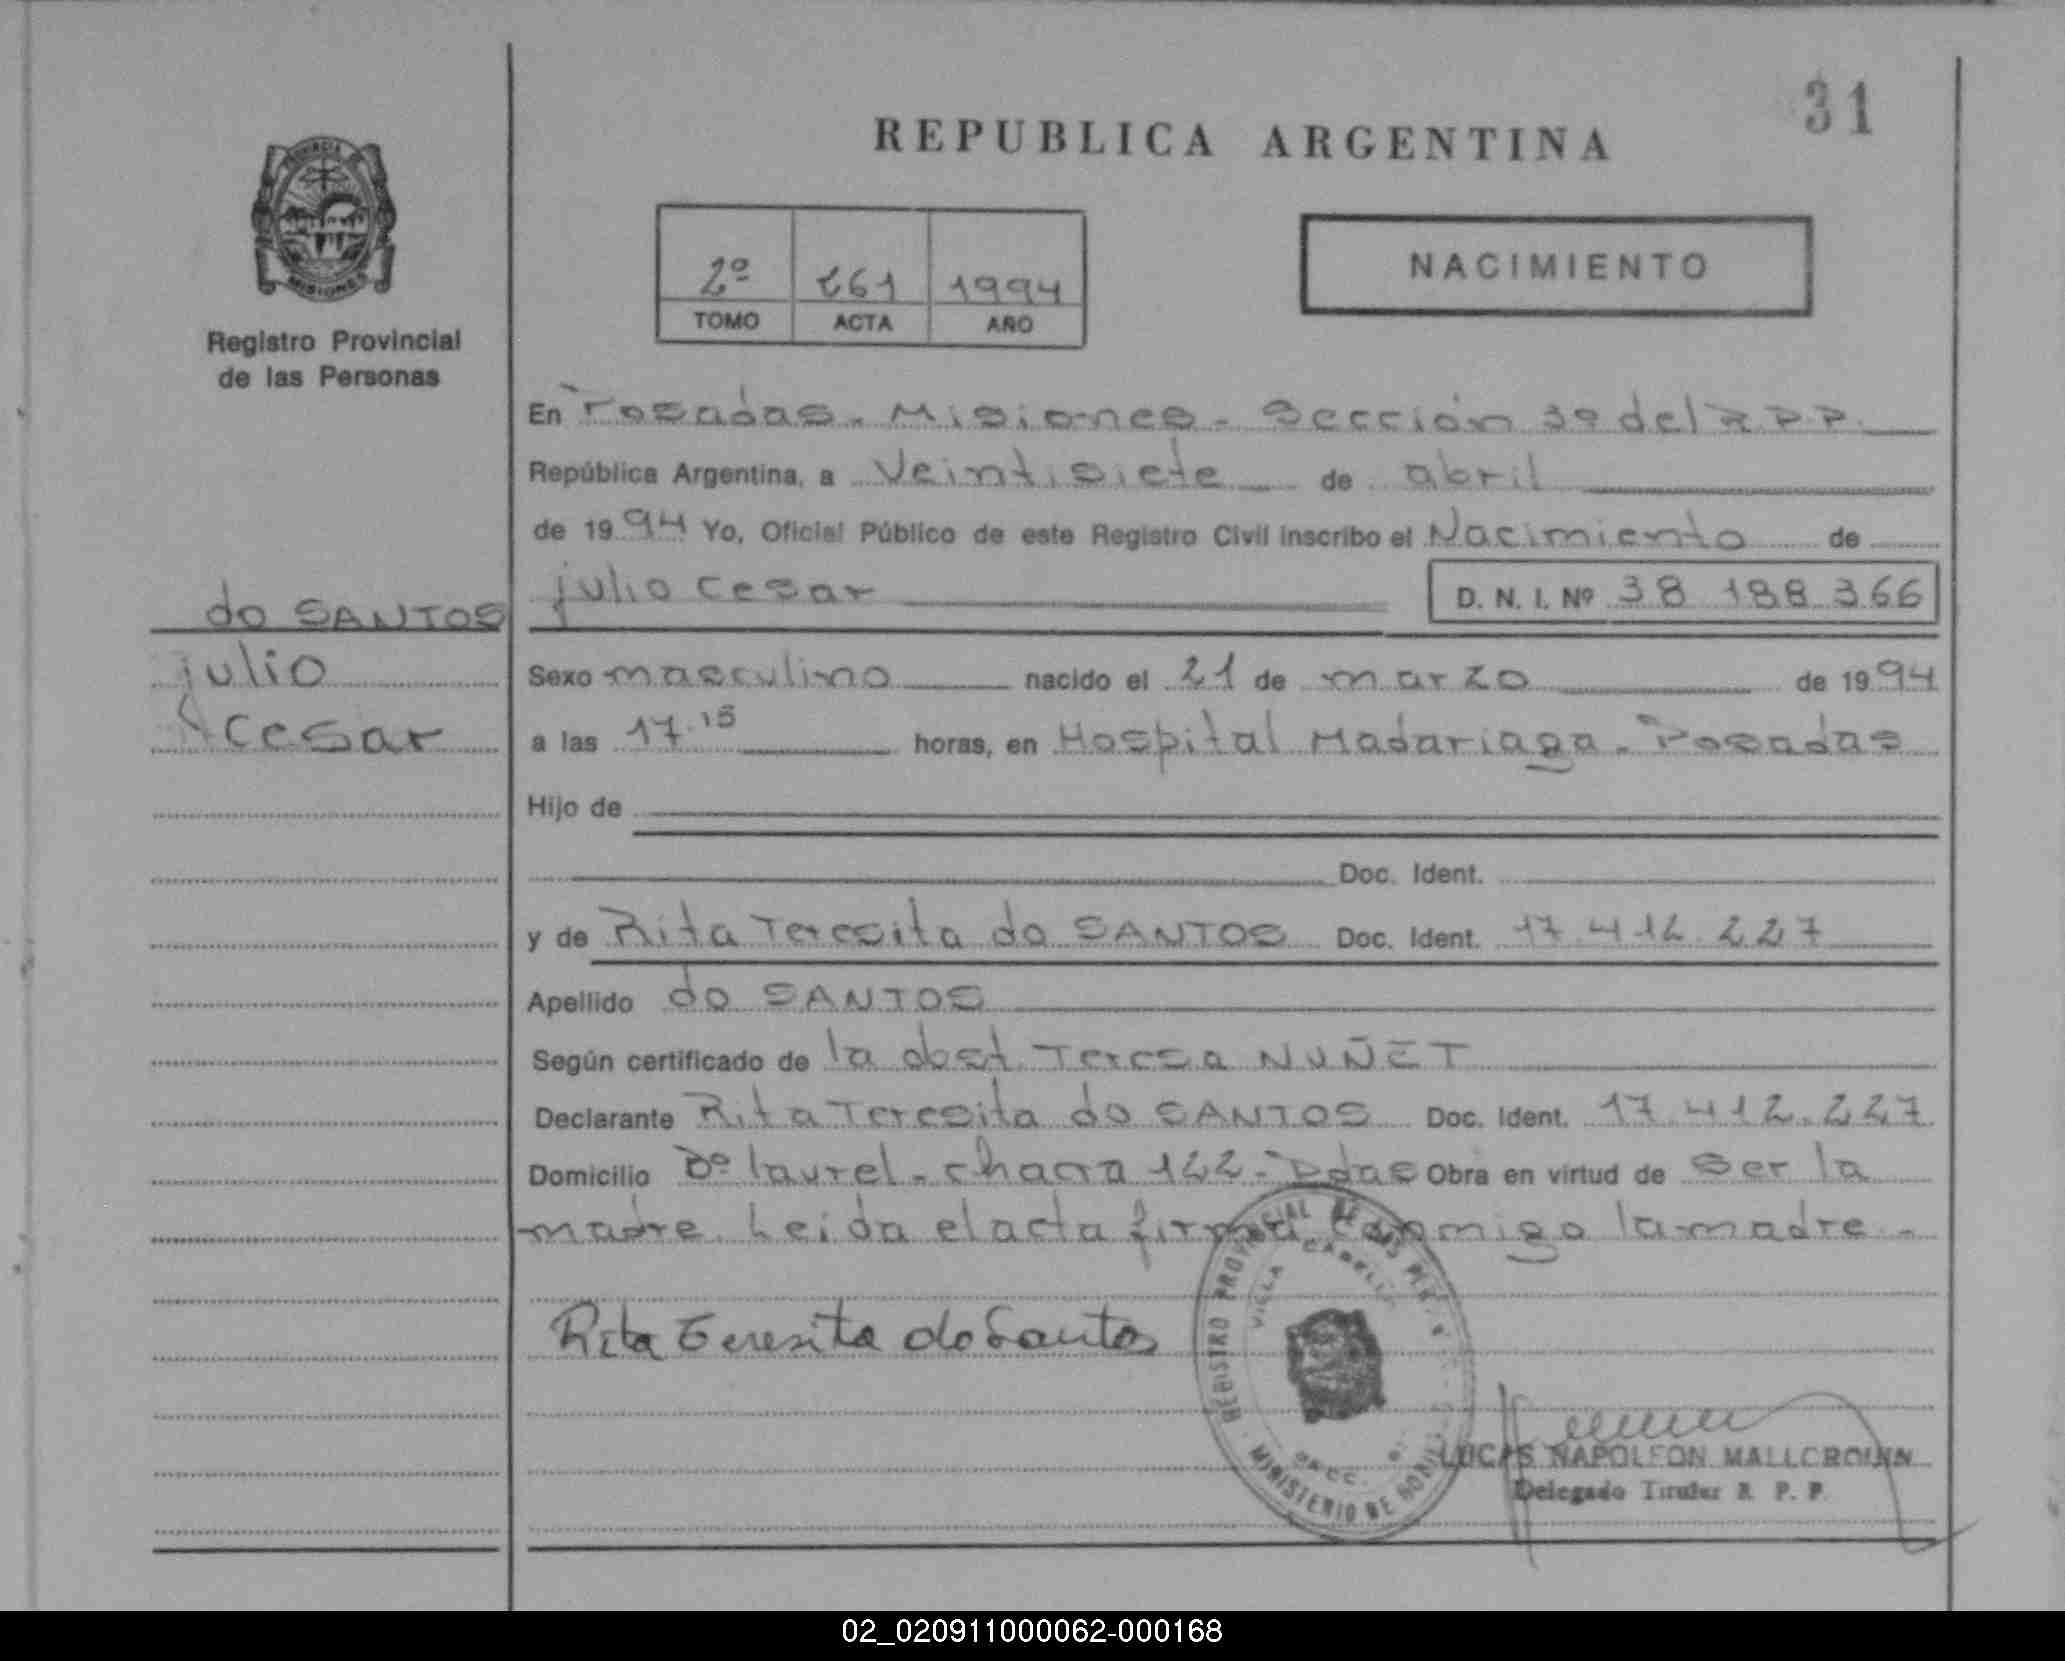 31
REPUBLICA ARGENTINA
PROVINCIA DE
MISIONES
Registro Provincial
de las Personas
2º 261 1994
TOMO ACTA AÑO
NACIMIENTO
En Posadas - Misiones - Sección 3º del R P P.
República Argentina, a Veintisiete de abril
de 1994 Yo, Oficial Público de este Registro Civil inscribo el Nacimiento de
do SANTOS julio cesar D. N. I. Nº 38 188 366
julio
cesar
Sexo masculino nacido el 21 de marzo de 1994
a las 17.15 horas, en Hospital Madariaga - Posadas
Hijo de
Doc. Ident.
y de Rita Teresita do SANTOS Doc. Ident. 17.412.227
Apellido do SANTOS
Según certificado de la obst. Teresa NUÑEZ
Declarante Rita Teresita do SANTOS Doc. Ident. 17.412.227
Domicilio Bº laurel - chacra 122 - Pdas Obra en virtud de Ser la
madre. Leida el acta firma conmigo la madre -
Rita Teresita do Santos
REGISTRO PROVINCIAL DE LAS PER
VILLA CABELLO
MINISTERIO DE GOBI
LUCAS NAPOLEON
Delegado Titular R. P. P.
02_020911000062-000168